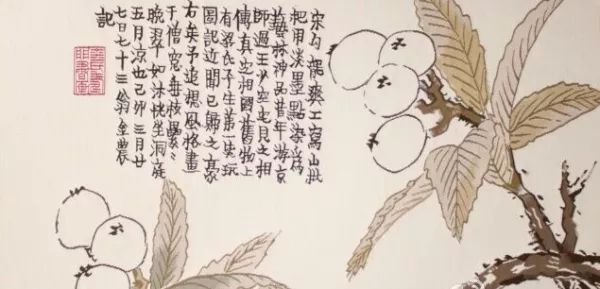 宋勾龍爽工寫山枇
杷用淡墨點染爲
藝林神品昔年游京
師過王少空見之相
傳真定相國舊物上
有梁氏子生第一快玩
圖記近聞已歸之家
右矣予追想風格畫
于僧窓每枝纍〻
晚翠如沐恍坐洞庭
五月凉也己卯三月廿
七日七十三翁金農
記